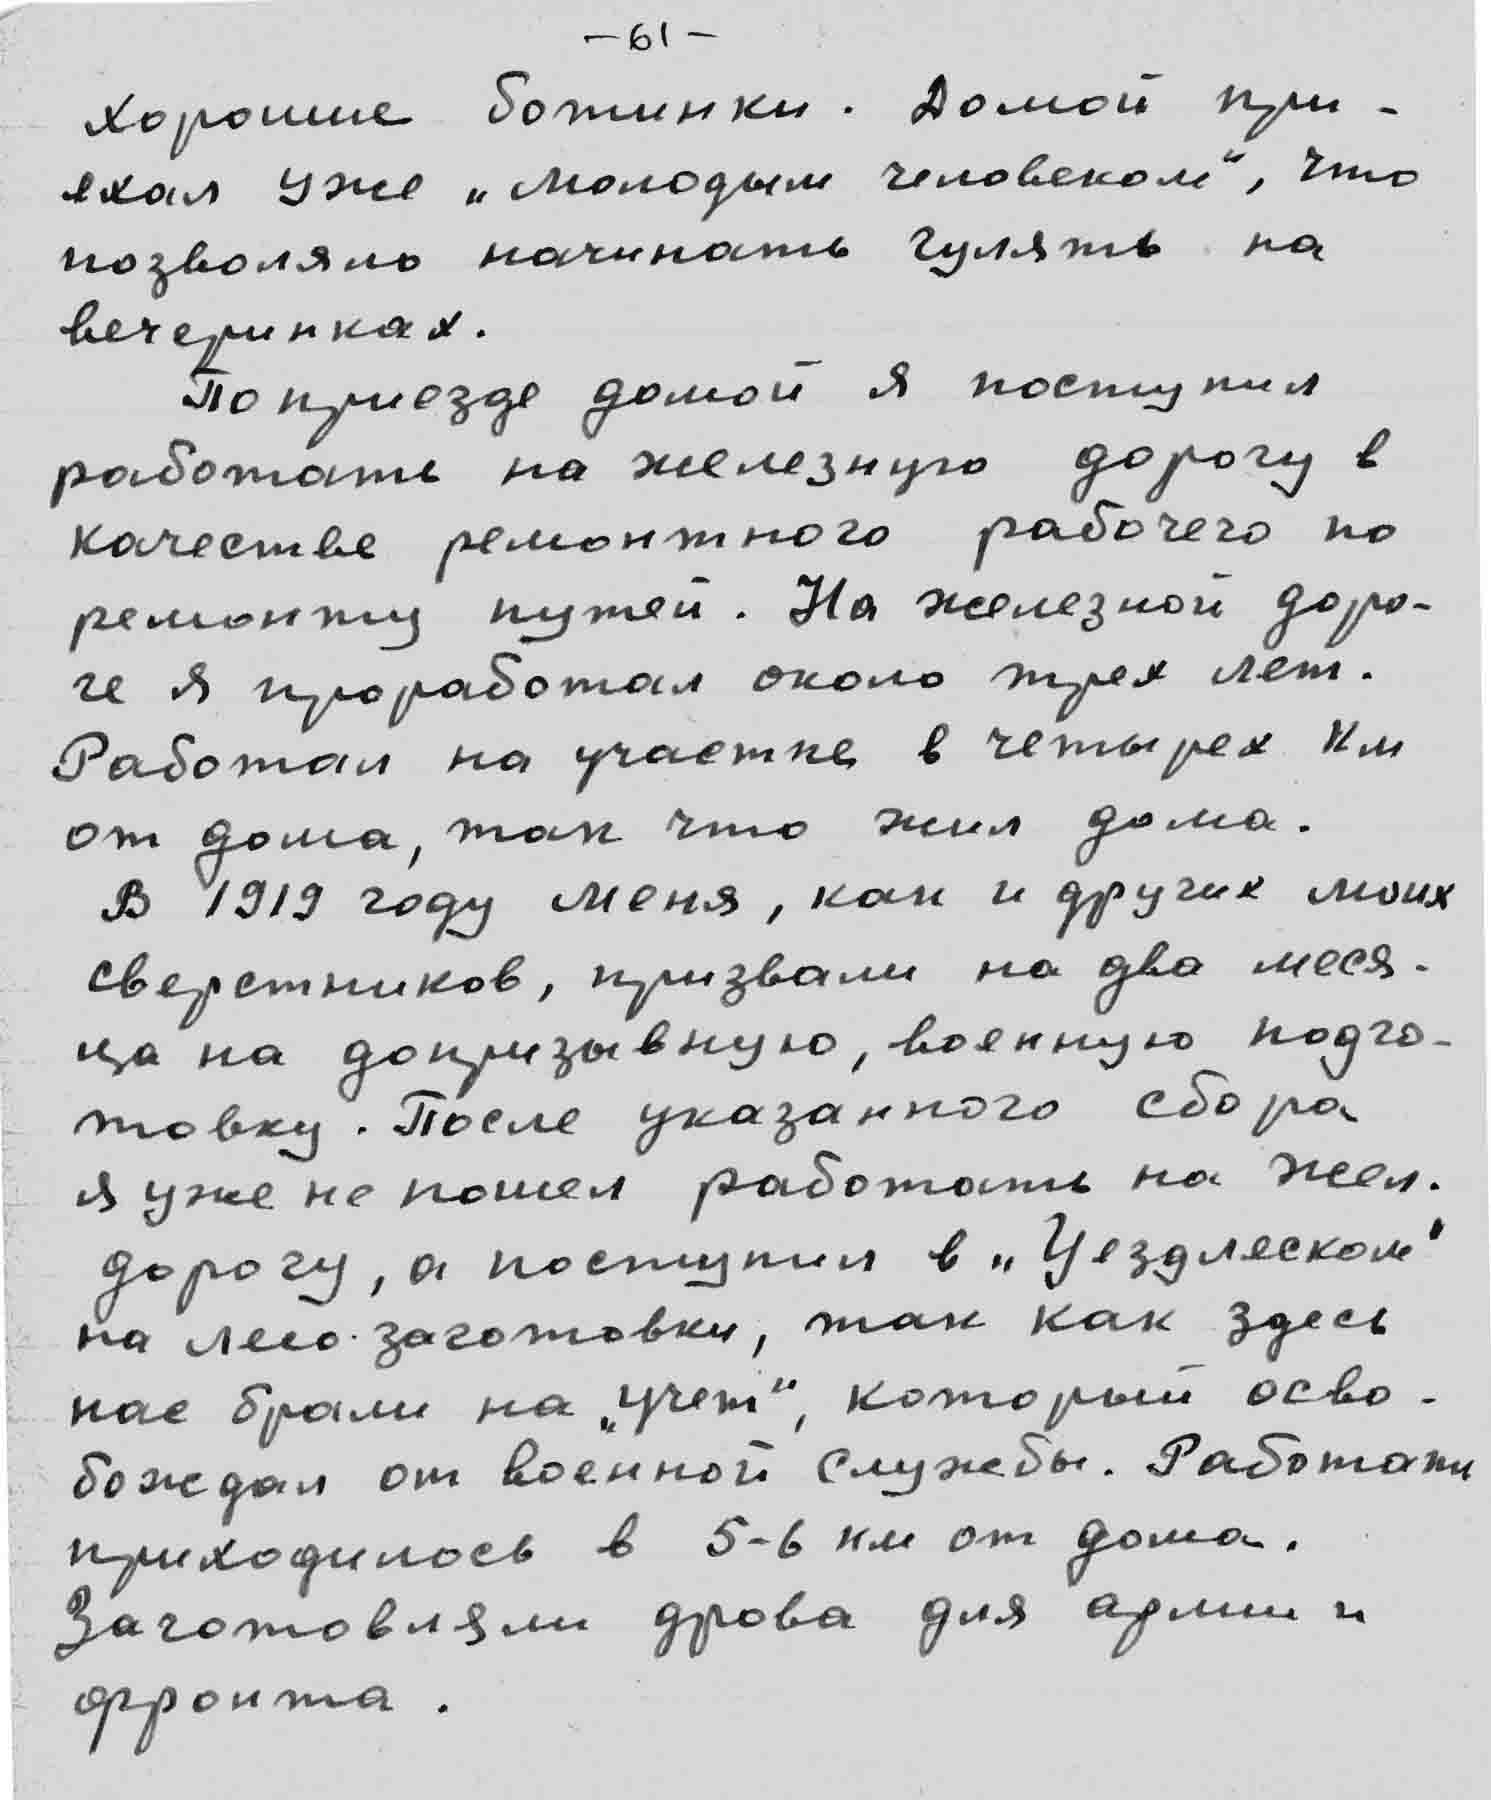 -61-
хорошие ботинки. Домой при-
ехал уже „молодым человеком“, что
позволяло начинать гулять на
вечеринках.
По приезде домой я поступил
работать на железную дорогу в
качестве ремонтного рабочего по
ремонту путей. На железной доро-
ге я проработал около трех лет.
Работал на участке в четырех км
от дома, так что жил дома.
В 1919 году меня, как и других моих
сверстников, призвали на два меся-
ца на допризывную, военную подго-
товку. После указанного сбора
я уже не пошел работать на жел.
дорогу, а поступил в „Уездлеском“
на лесо-заготовки, так как здесь
нас брали на „учет“, который осво-
бождал от военной службы. Работать
приходилось в 5-6 км от дома.
Заготовляли дрова для армии и
фронта.